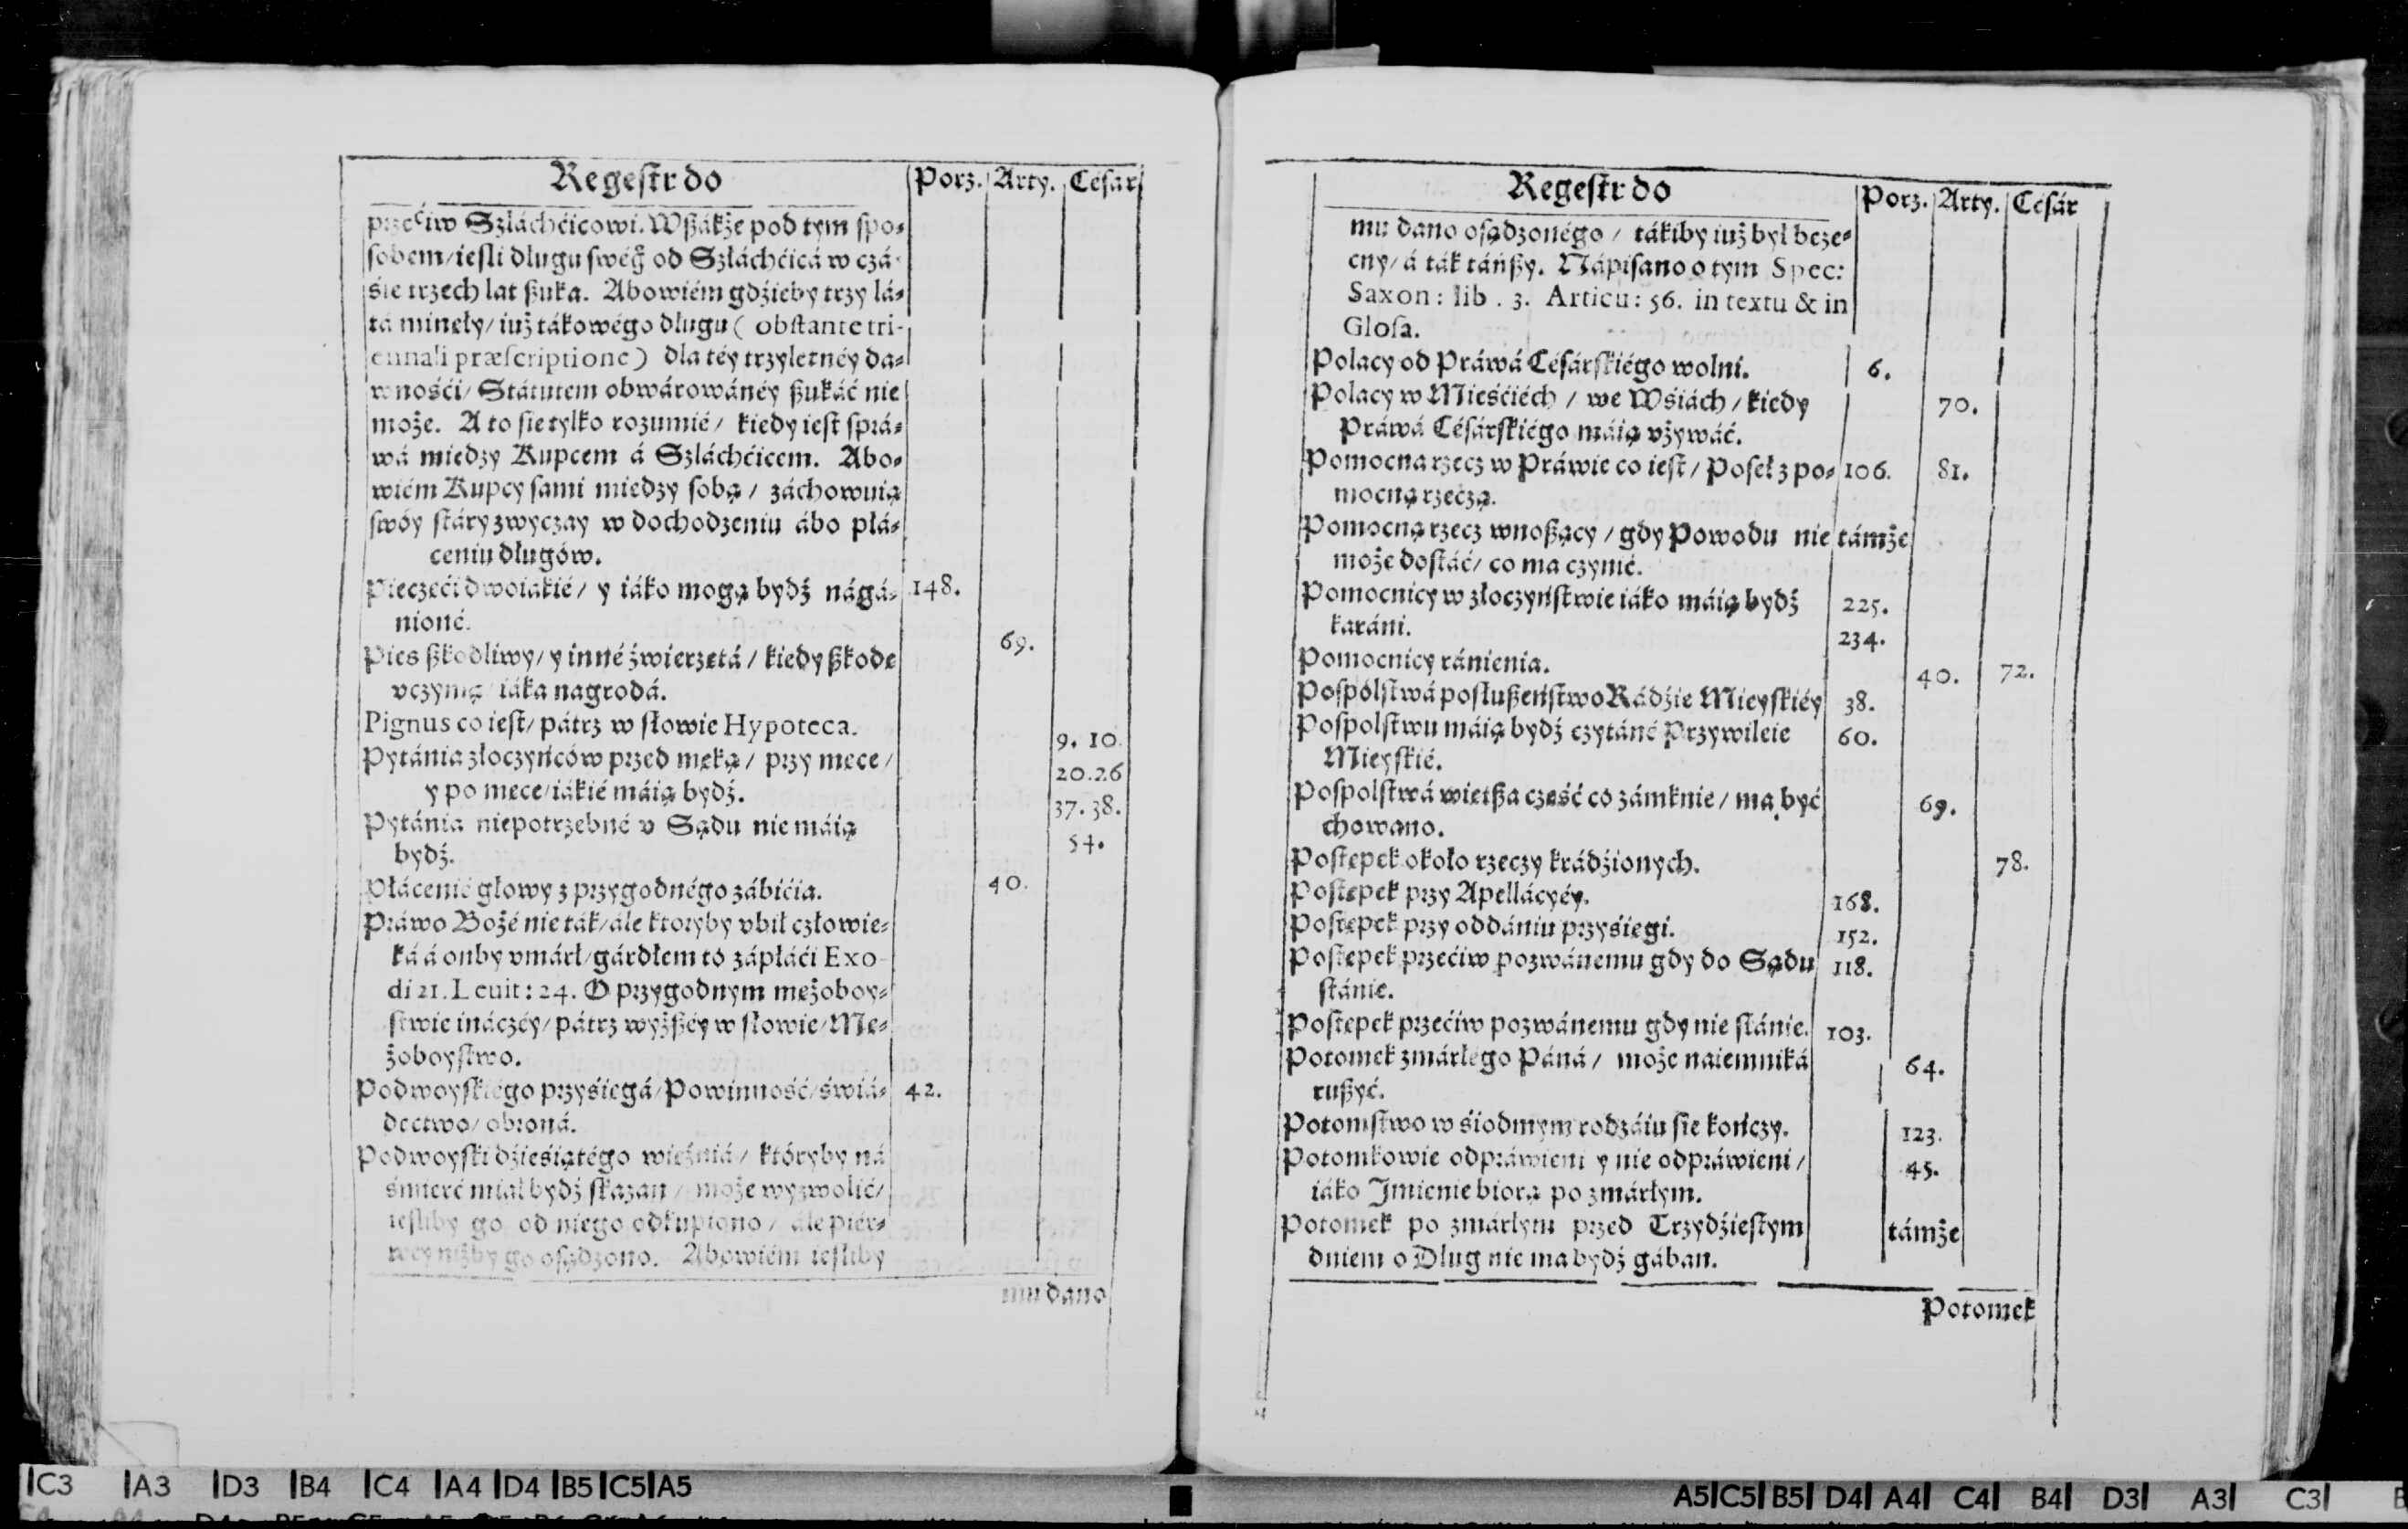 Regestr do | Porz. | Arty. | Césár
przećiw Szláchćicowi. Wßákże pod tym spo-
sobem/ iesli dlugu swég̃ od Szláchćicá w czá-
śie trzech lat ßuka. Abowiém gdźieby trzy lá-
tá minęły/ iuż tákowégo dlugu ( obstante tri-
ennali præscriptione ) dla téy trzyletnéy da-
wnośći/ Státutem obwárowánéy ßukáć nie
może. A to sie tylko rozumié/ kiedy iest sprá-
wá miedzy Kupcem á Szláchćicem. Abo-
wiém Kupcy sami miedzy sobą/ záchowuią
swóy stáry zwyczay w dochodzeniu ábo płá-
ceniu długów.
Pieczęći dwoiakié/ y iáko mogą bydź nágá- 148.
nioné.
Pies ßkodliwy/ y inné źwierzętá/ kiedy ßkodę 69.
vczynią/ iáka nagrodá.
Pignus co iest/ pátrz w słowie Hypoteca.
Pytánia złoczyńców przed męką/ przy męce/ 9. 10.
y po męce/ iákié máią bydź. 20.26
37. 38.
Pytánia niepotrzebné v Sądu nie máią 54.
bydź.
Płácenié głowy z przygodnégo zábićia. 40.
Práwo Bożé nie ták/ ále ktoryby vbił człowie-
ká á onby vmárł/ gárdłem to zápłáći Exo-
di 21. Leuit: 24. O przygodnym mężoboy-
stwie ináczéy/ pátrz wyżßéy w słowie/ Mę-
żoboystwo.
Podwoyskiégo przyśięgá/ Powinność/ świá- 42.
dectwo/ obroná.
Podwoyski dźieśiątégo więźniá/ któryby ná
śmierć miał bydź skazan/ może wyzwolić/
iesliby go od niego odkupiono/ ále piér-
wéy niżby go osądzono. Abowiém iesliby
mu dano
Regestr do | Porz. | Arty. | Césár
mu dano osądzonégo/ tákiby iuż był beze-
cny/ á ták táńßy. Nápisano o tym Spec:
Saxon: lib. 3. Articu: 56. in textu & in
Glosa.
Polacy od Práwá Césárskiégo wolni. 6.
Polacy w Mieśćiéch/ we Wśiách/ kiedy 70.
Práwá Césárskiégo máią vżywáć.
Pomocna rzecz w Práwie co iest/ Poseł z po- 106. 81.
mocną rzeczą.
Pomocną rzecz wnoßący/ gdy Powodu nie támże
może dostáć/ co ma czynić.
Pomocnicy w złoczyństwie iáko máią bydź 225.
karáni. 234.
Pomocnicy ránienia. 40. 72.
Pospólstwá posłußeństwo Rádźie Mieyskiéy 38.
Pospolstwu máią bydź czytáné Przywileie 60.
Mieyskié.
Pospolstwá więtßa część co zámknie/ mą być 69.
chowano.
Postępek około rzeczy krádźionych. 78.
Postępek przy Apellácyéy. 168.
Postępek przy oddániu przyśięgi. 152.
Postępek przećiw pozwánemu gdy do Sądu 118.
stánie.
Postępek przećiw pozwánemu gdy nie stánie. 103.
Potomek zmárłégo Páná/ może naiemniká 64.
rußyć.
Potomstwo w śiodmym rodzáiu sie kończy. 123.
Potomkowie odpráwieni y nie odpráwieni/ 45.
iáko Jmienie biorą po zmárłym.
Potomek po zmárłym przed Trzydźiestym támże
dniem o Dług nie ma bydź gában.
Potomek
C3 A3 D3 B4 C4 A4 D4 B5 C5 A5
A5 C5 B5 D4 A4 C4 B4 D3 A3 C3